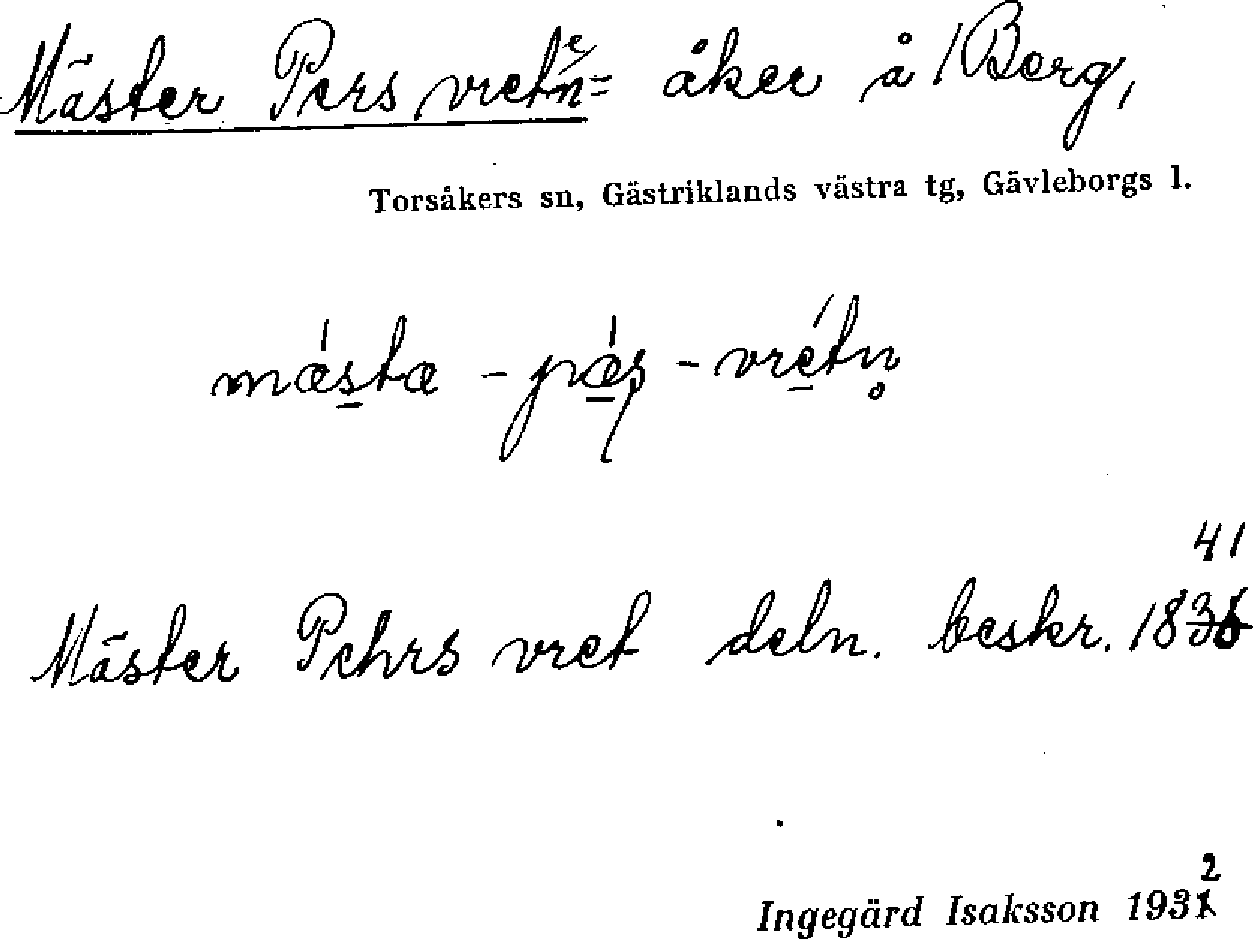 Mäster Pers vreten = åker å Berg,
Torsåkers sn, Gästriklands västra tg, Gävleborgs l.
mæ̍sta - pæ̍ş - vrétn̥
41
Mäster Pehrs vret deln. beskr. 1836
2
Ingegärd Isaksson 1931